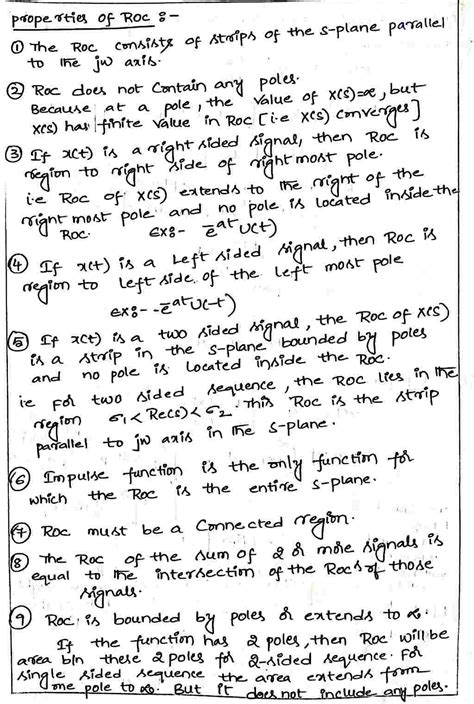 properties of ROC :-
① The ROC consists of strips of the s-plane parallel
to the jω axis.
② ROC does not contain any poles.
Because at a pole, the value of X(s)=∝, but
X(s) has finite value in ROC [i.e X(s) converges]
③ If x(t) is a right sided signal, then ROC is
region to right side of right most pole.
i.e ROC of X(s) extends to the right of the
right most pole and no pole is located inside the
ROC. Ex:- e^{-at} U(t)
④ If x(t) is a Left sided signal, then ROC is
region to Left side of the left most pole
Ex:- -e^{-at} U(-t)
⑤ If x(t) is a two sided signal, the ROC of X(s)
is a strip in the s-plane bounded by poles
and no pole is located inside the ROC.
ie For two sided sequence, the ROC lies in the
region σ1 < Re(s) < σ2 This ROC is the strip
parallel to jω axis in the s-plane.
⑥ Impulse function is the only function for
which the ROC is the entire s-plane.
⑦ ROC must be a connected region.
⑧ The ROC of the sum of 2 or more signals is
equal to the intersection of the ROCs of those
signals.
⑨ ROC is bounded by poles or extends to ∝.
If the function has 2 poles, then ROC will be
area b/n these 2 poles for 2-sided sequence. For
single sided sequence the area extends from
one pole to ∝. But it does not include any poles.